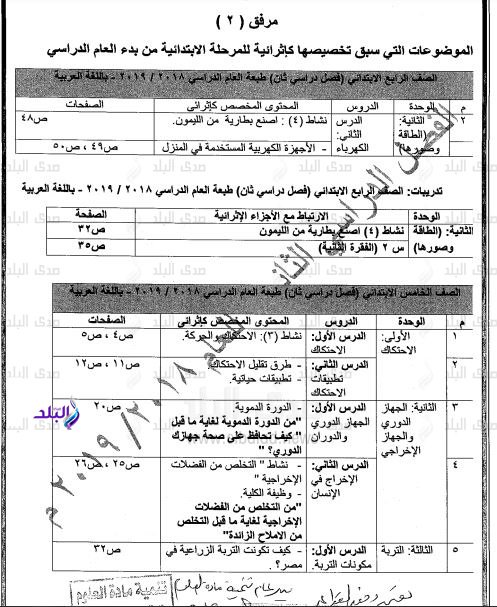 مرفق ( ٢ )
الموضوعات التي سبق تخصيصها كإثرائية للمرحلة الابتدائية من بدء العام الدراسي
الصف الرابع الابتدائي (فصل دراسي ثان) طبعة العام الدراسي ٢٠١٨ / ٢٠١٩ - باللغة العربية
م الوحدة الدروس المحتوى المخصص كإثرائي الصفحات
٢ الثانية: الدرس نشاط (٤) : اصنع بطارية من الليمون. ص٤٨
(الطاقة الثاني:
وصورها) الكهرباء - الأجهزة الكهربية المستخدمة في المنزل ص٤٩ ، ص٥٠
تدريبات: الصف الرابع الابتدائي (فصل دراسي ثان) طبعة العام الدراسي ٢٠١٨ / ٢٠١٩ - باللغة العربية
الوحدة الارتباط مع الأجزاء الإثرائية الصفحة
الثانية: (الطاقة نشاط (٤) اصنع بطارية من الليمون ص٣٢
وصورها) س ٢ (الفقرة الثانية) ص٣٥
الصف الخامس الابتدائي (فصل دراسي ثان) طبعة العام الدراسي ٢٠١٨ / ٢٠١٩ - باللغة العربية
م الوحدة الدروس المحتوى المخصص كإثرائي الصفحات
١ الأولى: الدرس الأول: نشاط (٣): الاحتكاك والحركة. ص٤ ، ص٥
الاحتكاك الاحتكاك
٢ الدرس الثاني: - طرق تقليل الاحتكاك. ص١١ ، ص١٢
تطبيقات - تطبيقات حياتية.
الاحتكاك
٣ الثانية: الجهاز الدرس الأول: - الدورة الدموية. ص٢٠
الدوري الجهاز الدوري "من الدورة الدموية لغاية ما قبل
والجهاز والدوران " كيف تحافظ على صحة جهازك
الإخراجي الدوري؟ "
٤ الدرس الثاني: - نشاط " التخلص من الفضلات ص٢٥ ، ص٢٦
الإخراج في الإخراجية "
الإنسان - وظيفة الكلية.
"من التخلص من الفضلات
الإخراجية لغاية ما قبل التخلص
من الاملاح الزائدة"
٥ الثالثة: التربة الدرس الأول: - كيف تكونت التربة الزراعية في ص٣٢
مكونات التربة. مصر؟
الفصل الدراسي الثاني للعام ٢٠١٨ / ٢٠١٩ م
صدى البلد
البلد
تنمية مادة العلوم